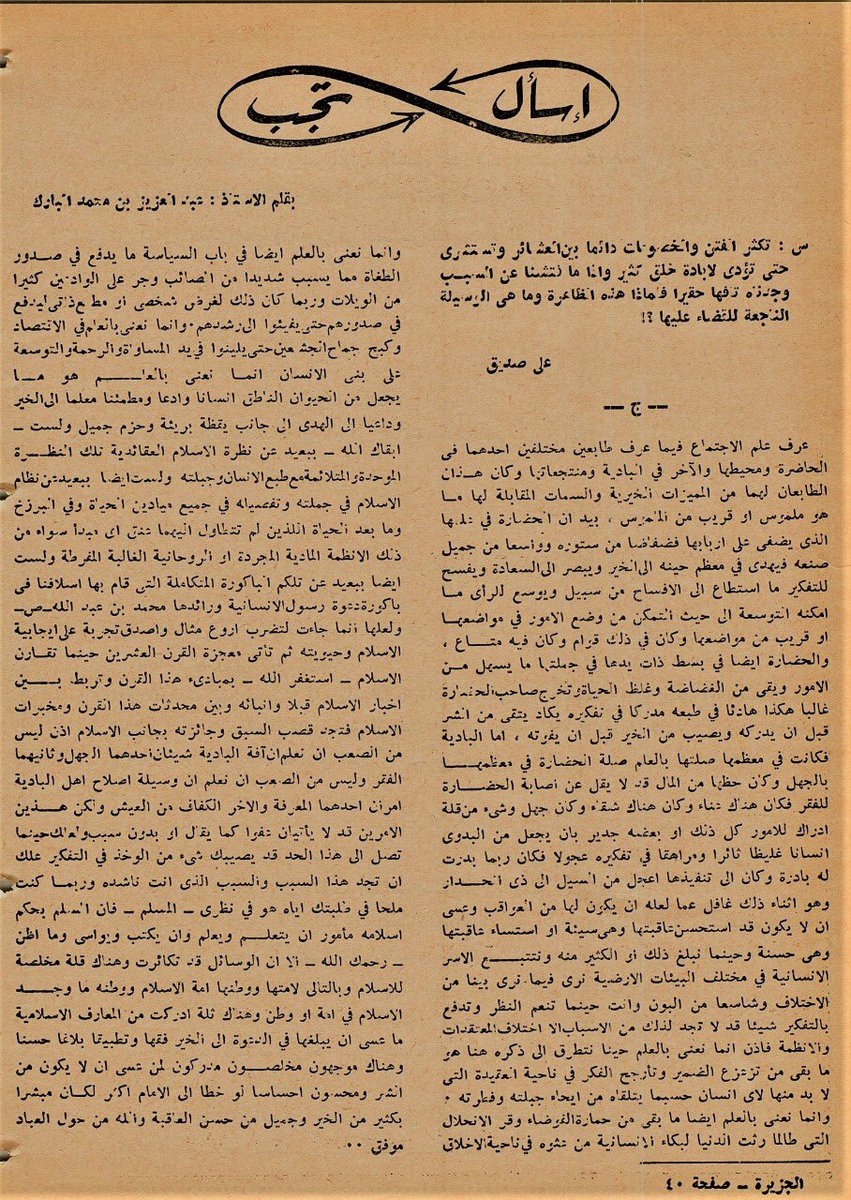 إسأل تجب
بقلم الاستاذ : عبد العزيز بن محمد المبارك
س : تكثر الفتن والخصومات دائما بين العشائر وتستشرى
حتى تؤدى لابادة خلق كثير واذا ما فتشنا عن السبب
وجدناه تافها حقيرا فلماذا هذه الظاهرة وما هى الوسيلة
الناجعة للقضاء عليها ؟!
على صديق
-- ج --
عرف علم الاجتماع فيما عرف طابعين مختلفين احدهما فى
الحاضرة ومحيطها والآخر في البادية ومنتجعاتها وكان هـذان
الطابعان لهما من المميزات الخيرية والسمات المقابلة لها مـا
هو ملموس او قريب من الملموس ، بيد ان الحضارة في
الذى يضفى على اربابها فضفاضا من ستوره وواسعا من جميل
صنعه فيهدى في معظم حينه الى الخير ويبصر الى السعادة ويفسح
للتفكير ما استطاع الى الافساح من سبيل ويوسع للرأى مـا
امكنه التوسعة الى حيث التمكن من وضع الامور في مواضعهـا
او قريب من مواضعها وكان في ذلك قوام وكان فيه متـاع ،
والحضارة ايضا في بسط ذات يدها في جملتها ما يسهل مـن
الامور ويقى من الغضاضة وغلظ الحياة وتخرج صاحب الحضارة
غالبا هكذا هادئا في طبعه مدركا في تفكيره يكاد يتقى من الشر
قبل ان يدركه ويصيب من الخير قبل ان يفوته ، اما البادية
فكانت في معظمها صلتها بالعلم صلة الحضارة في معظمهـا
بالجهل وكان حظها من المال قد لا يقل عن اصابة الحضـارة
للفقر فكان هناك عناء وكان هناك شقاء وكان جهل وشىء من قلة
ادراك للامور كل ذلك او بعضه جدير بان يجعل من البدوى
انسانا غليظا ثائرا ومراهقا في تفكيره عجولا فكان ربما بدرت
له بادرة وكان الى تنفيذها اعجل من السيل الى ذى الحـدار
وهو اثناء ذلك غافل عما لعله ان يكون لها من العواقب وعسى
ان لا يكون قد استحسن عاقبتها وهى سيئة او استساء عاقبتها
وهى حسنة وحينما نبلغ ذلك أو الكثير منه ونتتبـع الاسر
الانسانية في مختلف البيئات الارضية نرى فيما نرى بينا من
الاختلاف وشاسعا من البون وانت حينما تنعم النظر وتدفع
بالتفكير شيئا قد لا تجد لذلك من الاسباب الا اختلاف المعتقدات
والانظمة فاذن انما نعنى بالعلم حينا نتطرق الى ذكره هنا هو
ما يقى من تزعزع الضمير وتأرجح الفكر في ناحية العقيدة التى
لا بد منها لاى انسان حسبما يتلقاه من ايحاء جبلته وفطرته ٠
وانما نعنى بالعلم ايضا ما يقى من حمارة الفوضاء وقر الانحلال
التى طالما رثت الدنيا لبكاء الانسانية من عثره في ناحية الاخلاق
وانما نعنى بالعلم ايضا في باب السياسة ما يدفع في صـدور
الطغاة مما يسبب شديدا من المصائب وجر على الوادعين كثيرا
من الويلات وربما كان ذلك لغرض شخصى أو مطمع ذاتى ليدفع
في صدورهم حتى يفيئوا الى رشدهم٠ وانما نعنى بالعلم في الاقتصاد
وكبح جماح الجشعين حتى يلينوا في يد المساواة والرحمة والتوسعة
على بنى الانسان انما نعنى بالعلـم هو مـا
يجعل من الحيوان الناطق انسانا وادعا ومطمئنا معلما الى الخير
وداعيا الى الهدى الى جانب يقظة بريئة وحزم جميل ولست ـ
ابقاك الله ـ ببعيد عن نظرة الاسلام العقائدية تلك النظـرة
الموحدة والمتلائمة مع طبع الانسان وجبلته ولست ايضا ببعيد عن نظام
الاسلام في جملته وتفصيله في جميع ميادين الحياة وفي البرزخ
وما بعد الحياة اللذين لم تتطاول اليهما عنق اى مبدأ سواه من
ذلك الانظمة المادية المجردة او الروحانية الغالبة المفرطة ولست
ايضا ببعيد عن تلكم الباكورة المتكاملة التى قام بها اسلافنا فى
باكورة دعوة رسول الانسانية ورائدها محمد بن عبد الله ـص ـ
ولعلها انما جاءت لتضرب اروع مثال واصدق تجربة على ايجابية
الاسلام وحيويته ثم تأتى معجزة القرن العشرين حينما تقـارن
الاسلام ـ استغفر الله ـ بمبادىء هذا القرن وتربط بـين
اخبار الاسلام قبلا وانبائه وبين محدثات هذا القرن ومخبرات
الاسلام فتجد قصب السبق وجائزته بجانب الاسلام اذن ليس
من الصعب ان نعلم ان آفة البادية شيئان احدهما الجهل وثانيهما
الفقر وليس من الصعب ان نعلم ان وسيلة اصلاح اهل البادية
امران احدهما المعرفة والاخر الكفاف من العيش ولكن هـذين
الامرين قد لا يأتيان عفوا كما يقال او بدون سبب ولعلك حينما
تصل الى هذا الحد قد يصيبك شىء من الوخذ في التفكير علك
ان تجد هذا السبب والسبب الذى انت ناشده وربمـا كنت
ملحا في طلبتك اياه هو في نظرى ـ المسلم ـ فان المسلم بحكم
اسلامه مأمور ان يتعلـم ويعلم وان يكتب ويواسى وما اظن
ـ رحمك الله ـ الا ان الوسائل قد تكاثرت وهناك قلة مخلصة
للاسلام وبالتالى لامتها ووطنها امة الاسلام ووطنه ما وجـد
الاسلام في امة او وطن وهناك ثلة ادركت من المعارف الاسلامية
ما عسى ان يبلغها في الدعوة الى الخير فقها وتطبيقا بلاغا حسنا
وهناك موجهون مخلصـون مدركون لمن عسى ان لا يكون من
انشر ومحسون احساسا لو خطا الى الامام اكثر لكـان مبشرا
بكثير من الخير وجميل من حسن العاقبة والله من حول العباد
موفق ٠٠
الجزيرة ـ صفحة ٤٠